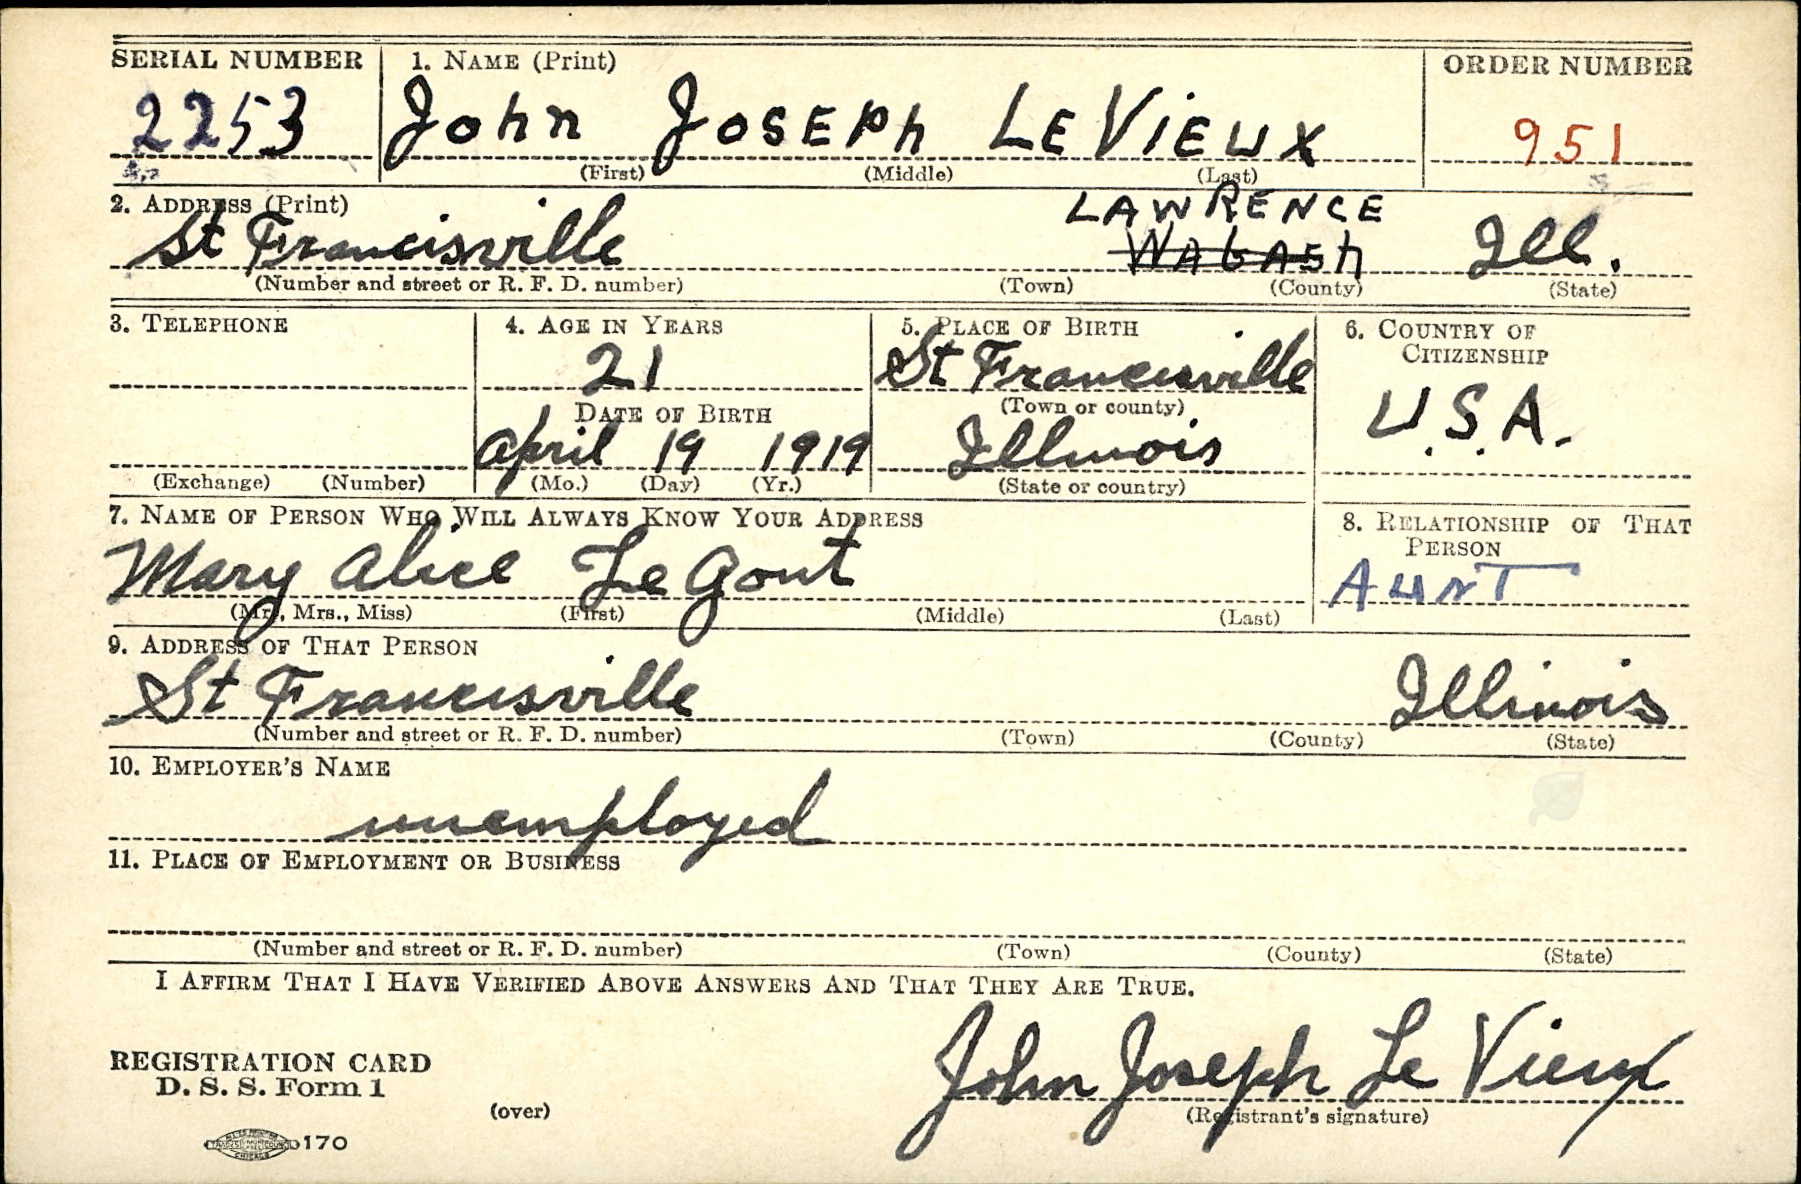 SERIAL NUMBER 1. NAME (Print) ORDER NUMBER
2253 John JOSEPh LEViEUX 951
(First) (Middle) (Last)
2. ADDRESS (Print) LAWRENCE
St Francisville WABASh Ill.
(Number and street or R. F. D. number) (Town) (County) (State)
3. TELEPHONE 4. AGE IN YEARS 5. PLACE OF BIRTH 6. COUNTRY OF CITIZENSHIP
21 St Francisville U.S.A.
DATE OF BIRTH (Town or county)
April 19 1919 Illinois
(Exchange) (Number) (Mo.) (Day) (Yr.) (State or country)
7. NAME OF PERSON WHO WILL ALWAYS KNOW YOUR ADDRESS 8. RELATIONSHIP OF THAT PERSON
Mary Alice Le Gout AUNT
(Mr., Mrs., Miss) (First) (Middle) (Last)
9. ADDRESS OF THAT PERSON
St Francisville Illinois
(Number and street or R. F. D. number) (Town) (County) (State)
10. EMPLOYER'S NAME
unemployed
11. PLACE OF EMPLOYMENT OR BUSINESS
(Number and street or R. F. D. number) (Town) (County) (State)
I AFFIRM THAT I HAVE VERIFIED ABOVE ANSWERS AND THAT THEY ARE TRUE.
John Joseph Le Vieux
REGISTRATION CARD
D. S. S. Form 1
(over) (Registrant's signature)
170